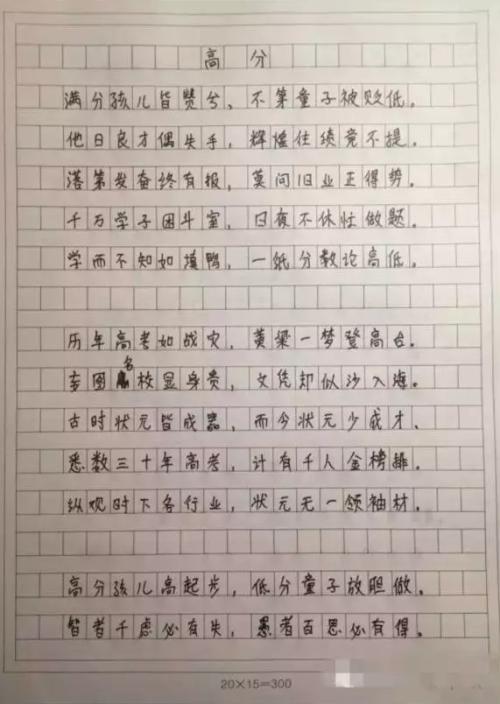 高分
满分孩儿皆赞兮，不第童子被贬低。
他日良才偶失手，辉煌往绩竟不提。
落第发奋终有报，莫问旧业正得势。
千万学子困斗室，日夜不休忙做题。
学而不知如填鸭，一纸分数论高低。
历年高考如战灾，黄粱一梦登高台。
妄图名校显身贵，文凭却似沙入海。
古时状元皆成器，而今状元少成才。
悉数三十年高考，计有千人金榜排。
纵观时下各行业，状元无一领袖材。
高分孩儿高起步，低分童子放胆做。
智者千虑必有失，愚者百思必有得。
20×15=300